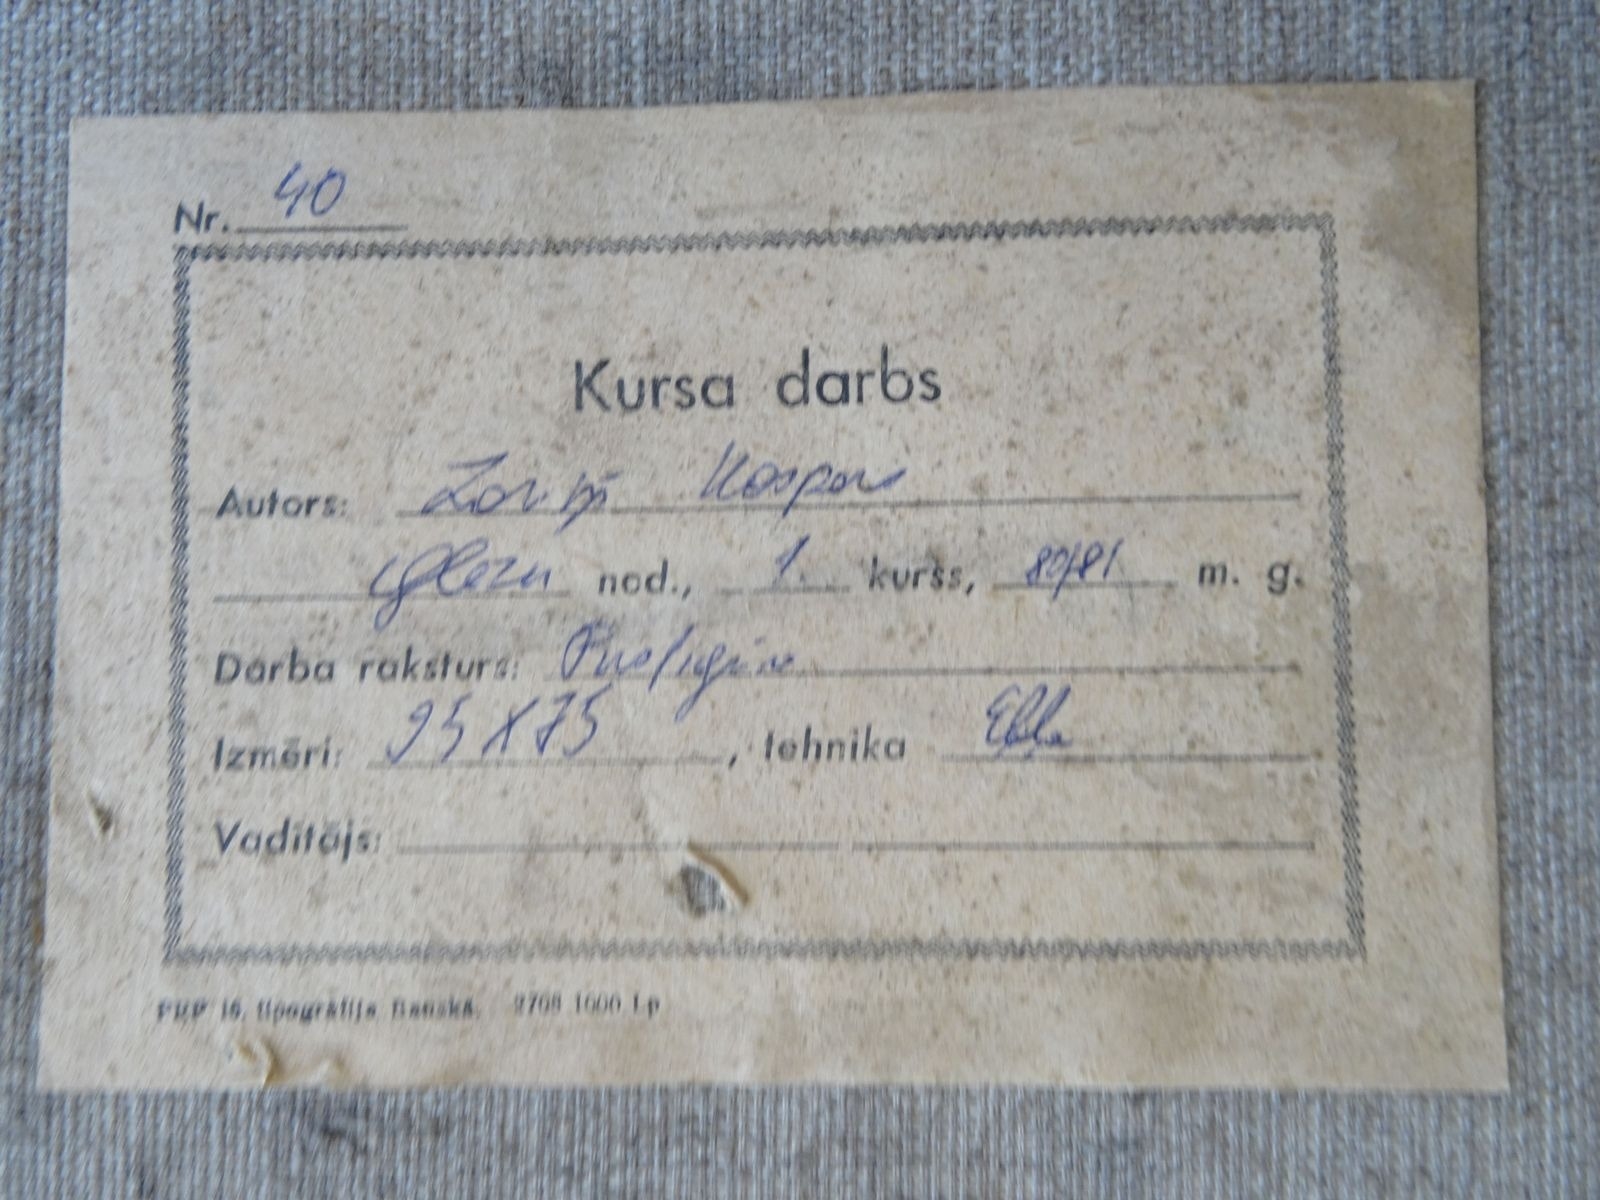 Nr. 40
Kursa darbs
Autors: Zariņš Kaspars
Glezn nod., 1. kurss, 80/81 m. g.
Darba raksturs: Pusfigūra
Izmēri: 95 X 75, tehnika Eļļa
Vadītājs:
16. tipogrāfija Bauskā. 2708 1000 Lp